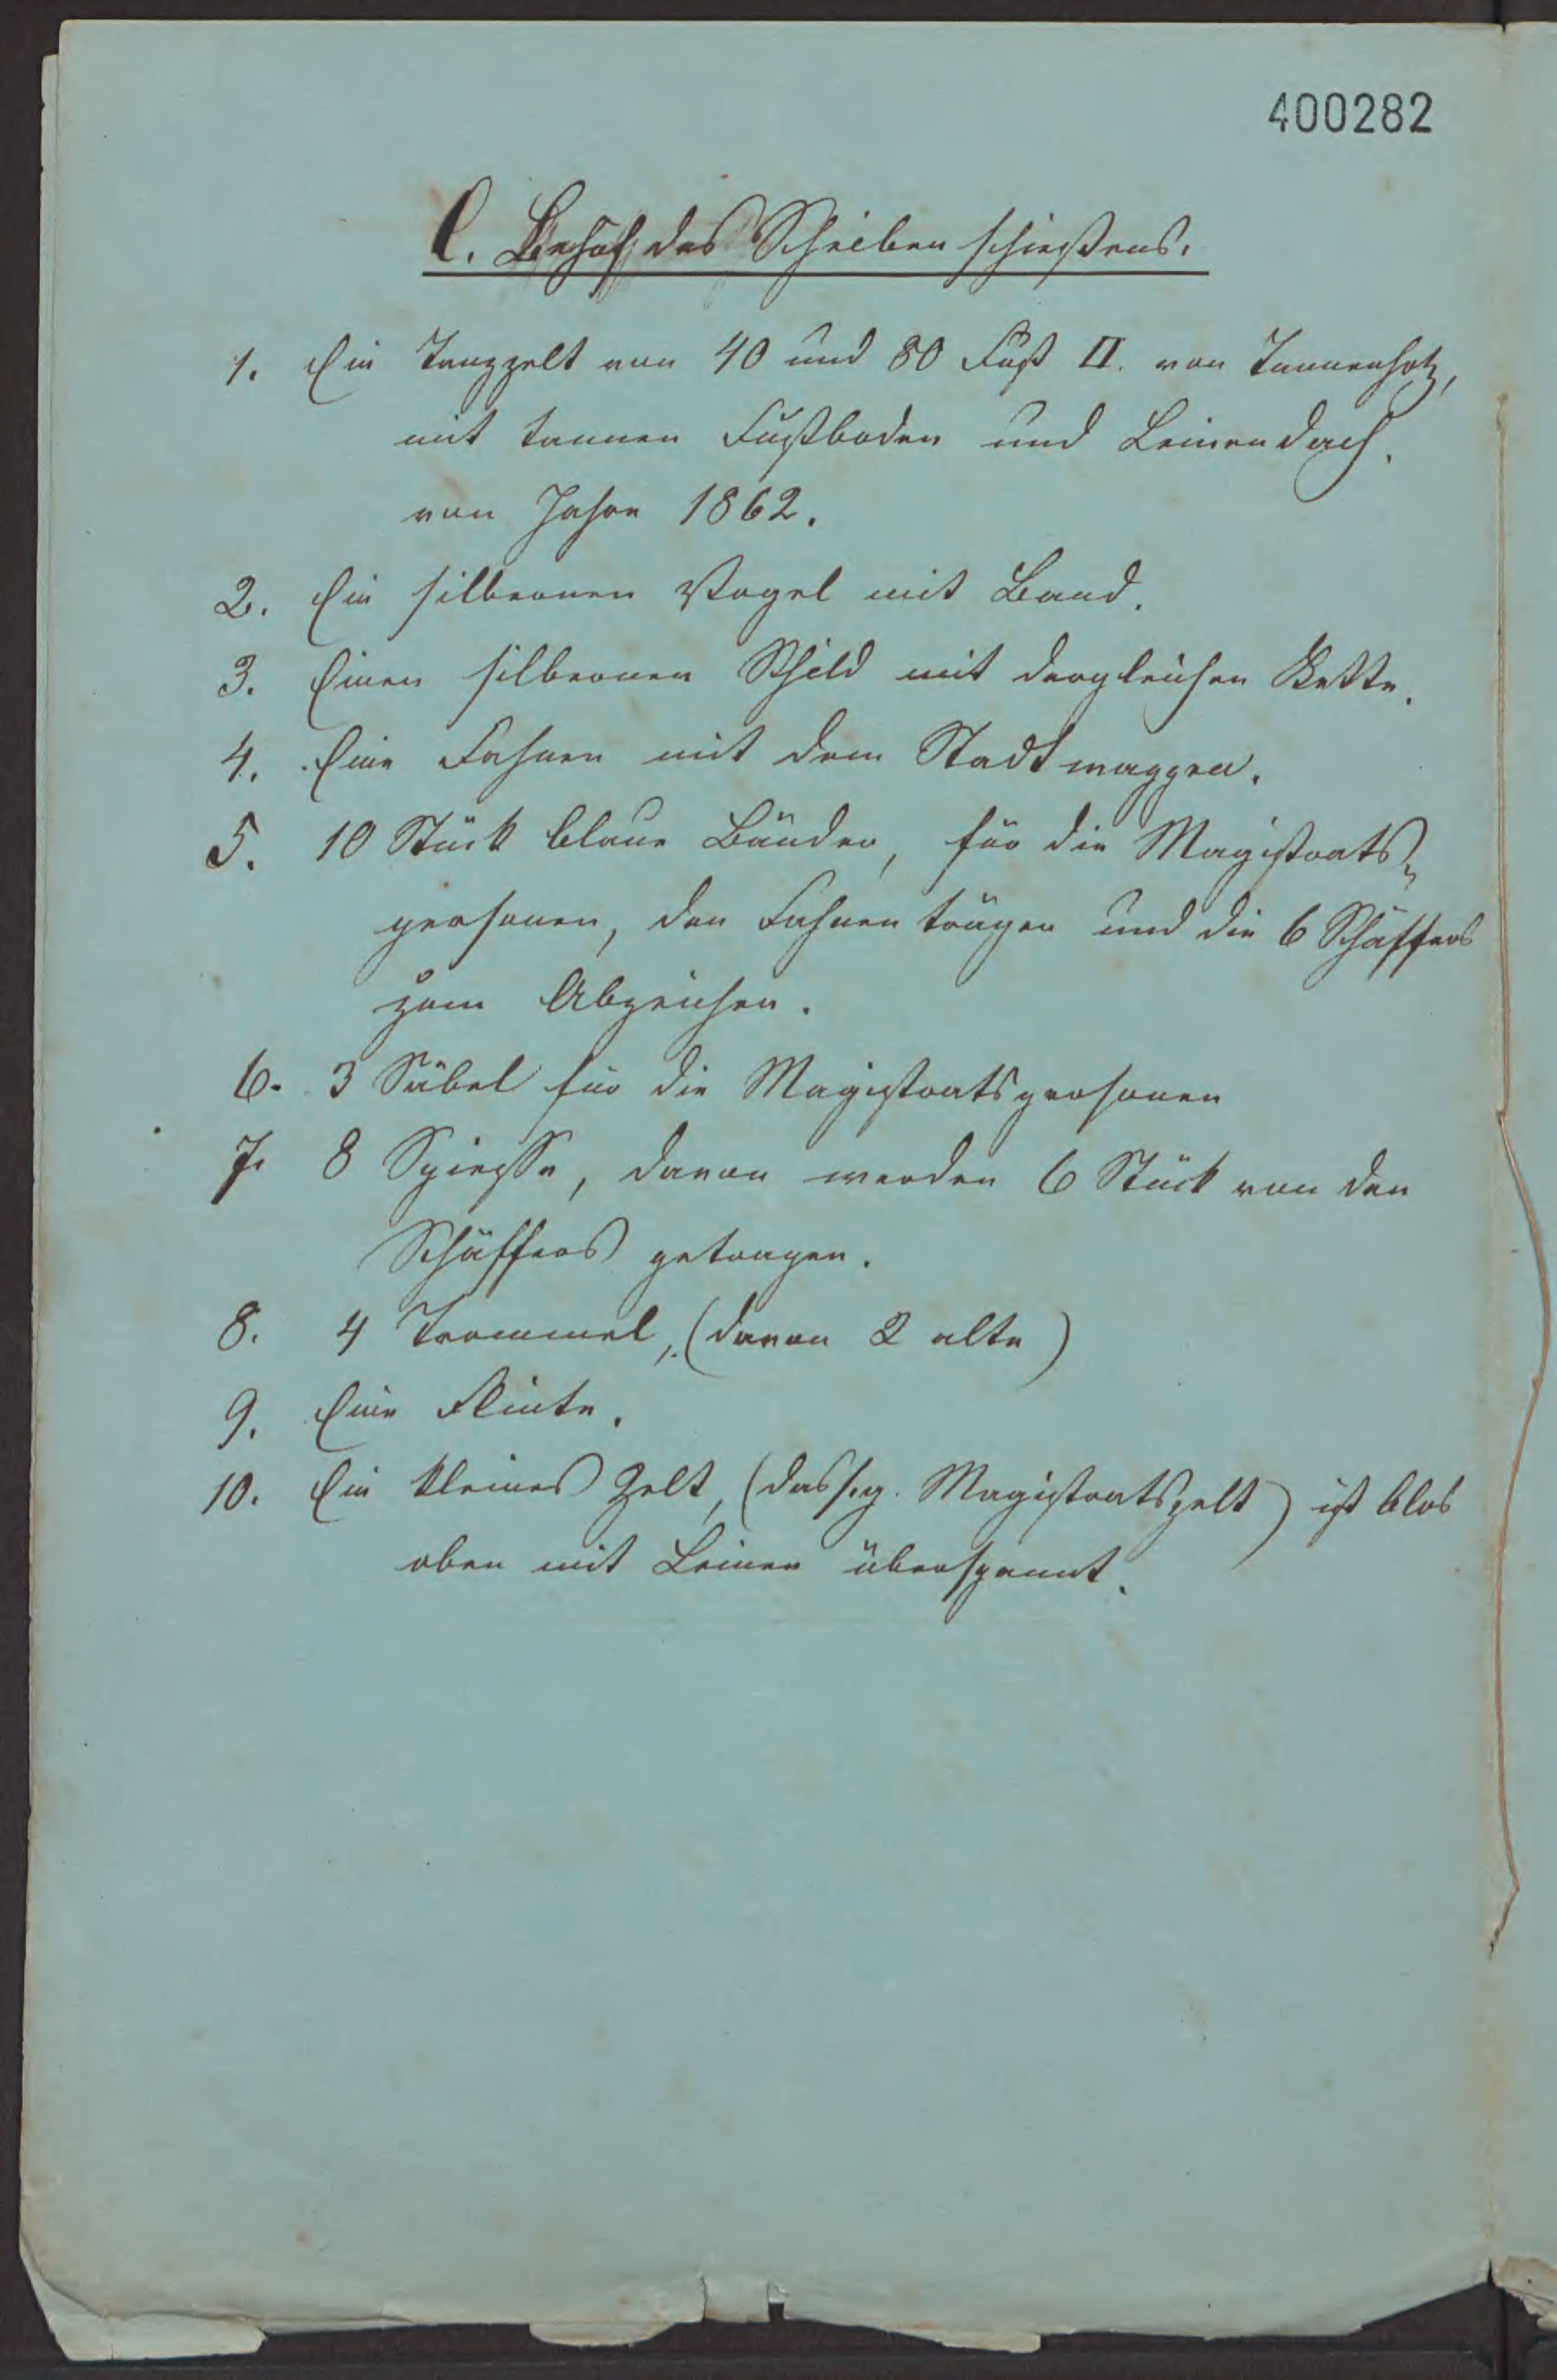 400282
C. Behuf des Scheibenschießens.
1. Ein Tanzzelt von 40 und 80 Fuß II. von Tannenholz,
mit tannen Fußboden und Leinendach.
von Jahre 1862.
2. Ein silbernen Vogel mit Band.
3. Einen silbernen Schild mit dergleichen Kette.
4. Eine Fahnen mit dem Stadtwappen.
5. 10 Stück blaue Bänder, für die Magistrats-
personen, den Fahnenträger und die 6 Schäffers
zum Abzeichen.
6. 3 Säbel für die Magistratspersonen
7. 8 Spiesse, davon werden 6 Stück von den
Schäffers getragen.
8. 4 Trommel, (davon 2 alte)
9. Eine Flinte.
10. Ein kleines Zelt, (das s.g. Magistratszelt) ist blos
oben mit Leinen überspannt.